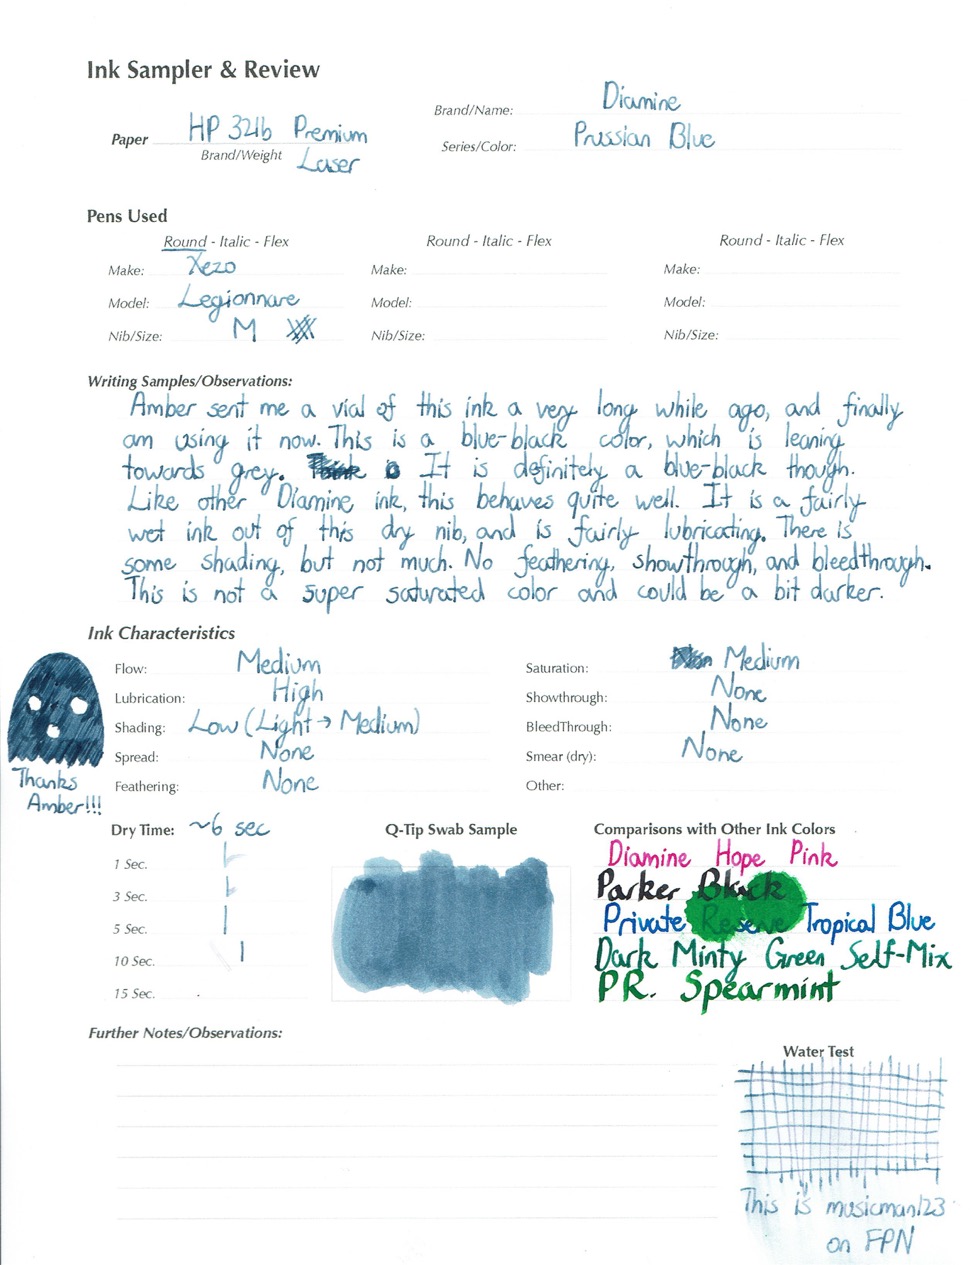 Ink Sampler & Review
Brand/Name: Diamine
Paper HP 32lb Premium
Brand/Weight Laser
Series/Color: Prussian Blue
Pens Used
Round - Italic - Flex
Make: Xezo
Model: Legionnare
Nib/Size: M
Round - Italic - Flex
Make:
Model:
Nib/Size:
Round - Italic - Flex
Make:
Model:
Nib/Size:
Writing Samples/Observations:
Amber sent me a vial of this ink a very long while ago, and finally
am using it now. This is a blue-black color, which is leaning
towards grey. It is definitely a blue-black though.
Like other Diamine ink, this behaves quite well. It is a fairly
wet ink out of this dry nib, and is fairly lubricating. There is
some shading, but not much. No feathering, showthrough, and bleedthrough.
This is not a super saturated color and could be a bit darker.
Ink Characteristics
Flow: Medium
Lubrication: High
Shading: Low (Light → Medium)
Spread: None
Feathering: None
Saturation: Medium
Showthrough: None
BleedThrough: None
Smear (dry): None
Other:
Thanks
Amber!!!
Dry Time: ~6 sec
1 Sec.
3 Sec.
5 Sec.
10 Sec.
15 Sec.
Q-Tip Swab Sample
Comparisons with Other Ink Colors
Diamine Hope Pink
Parker Black
Private Reserve Tropical Blue
Dark Minty Green Self-Mix
P.R. Spearmint
Further Notes/Observations:
Water Test
This is musicman123
on FPN